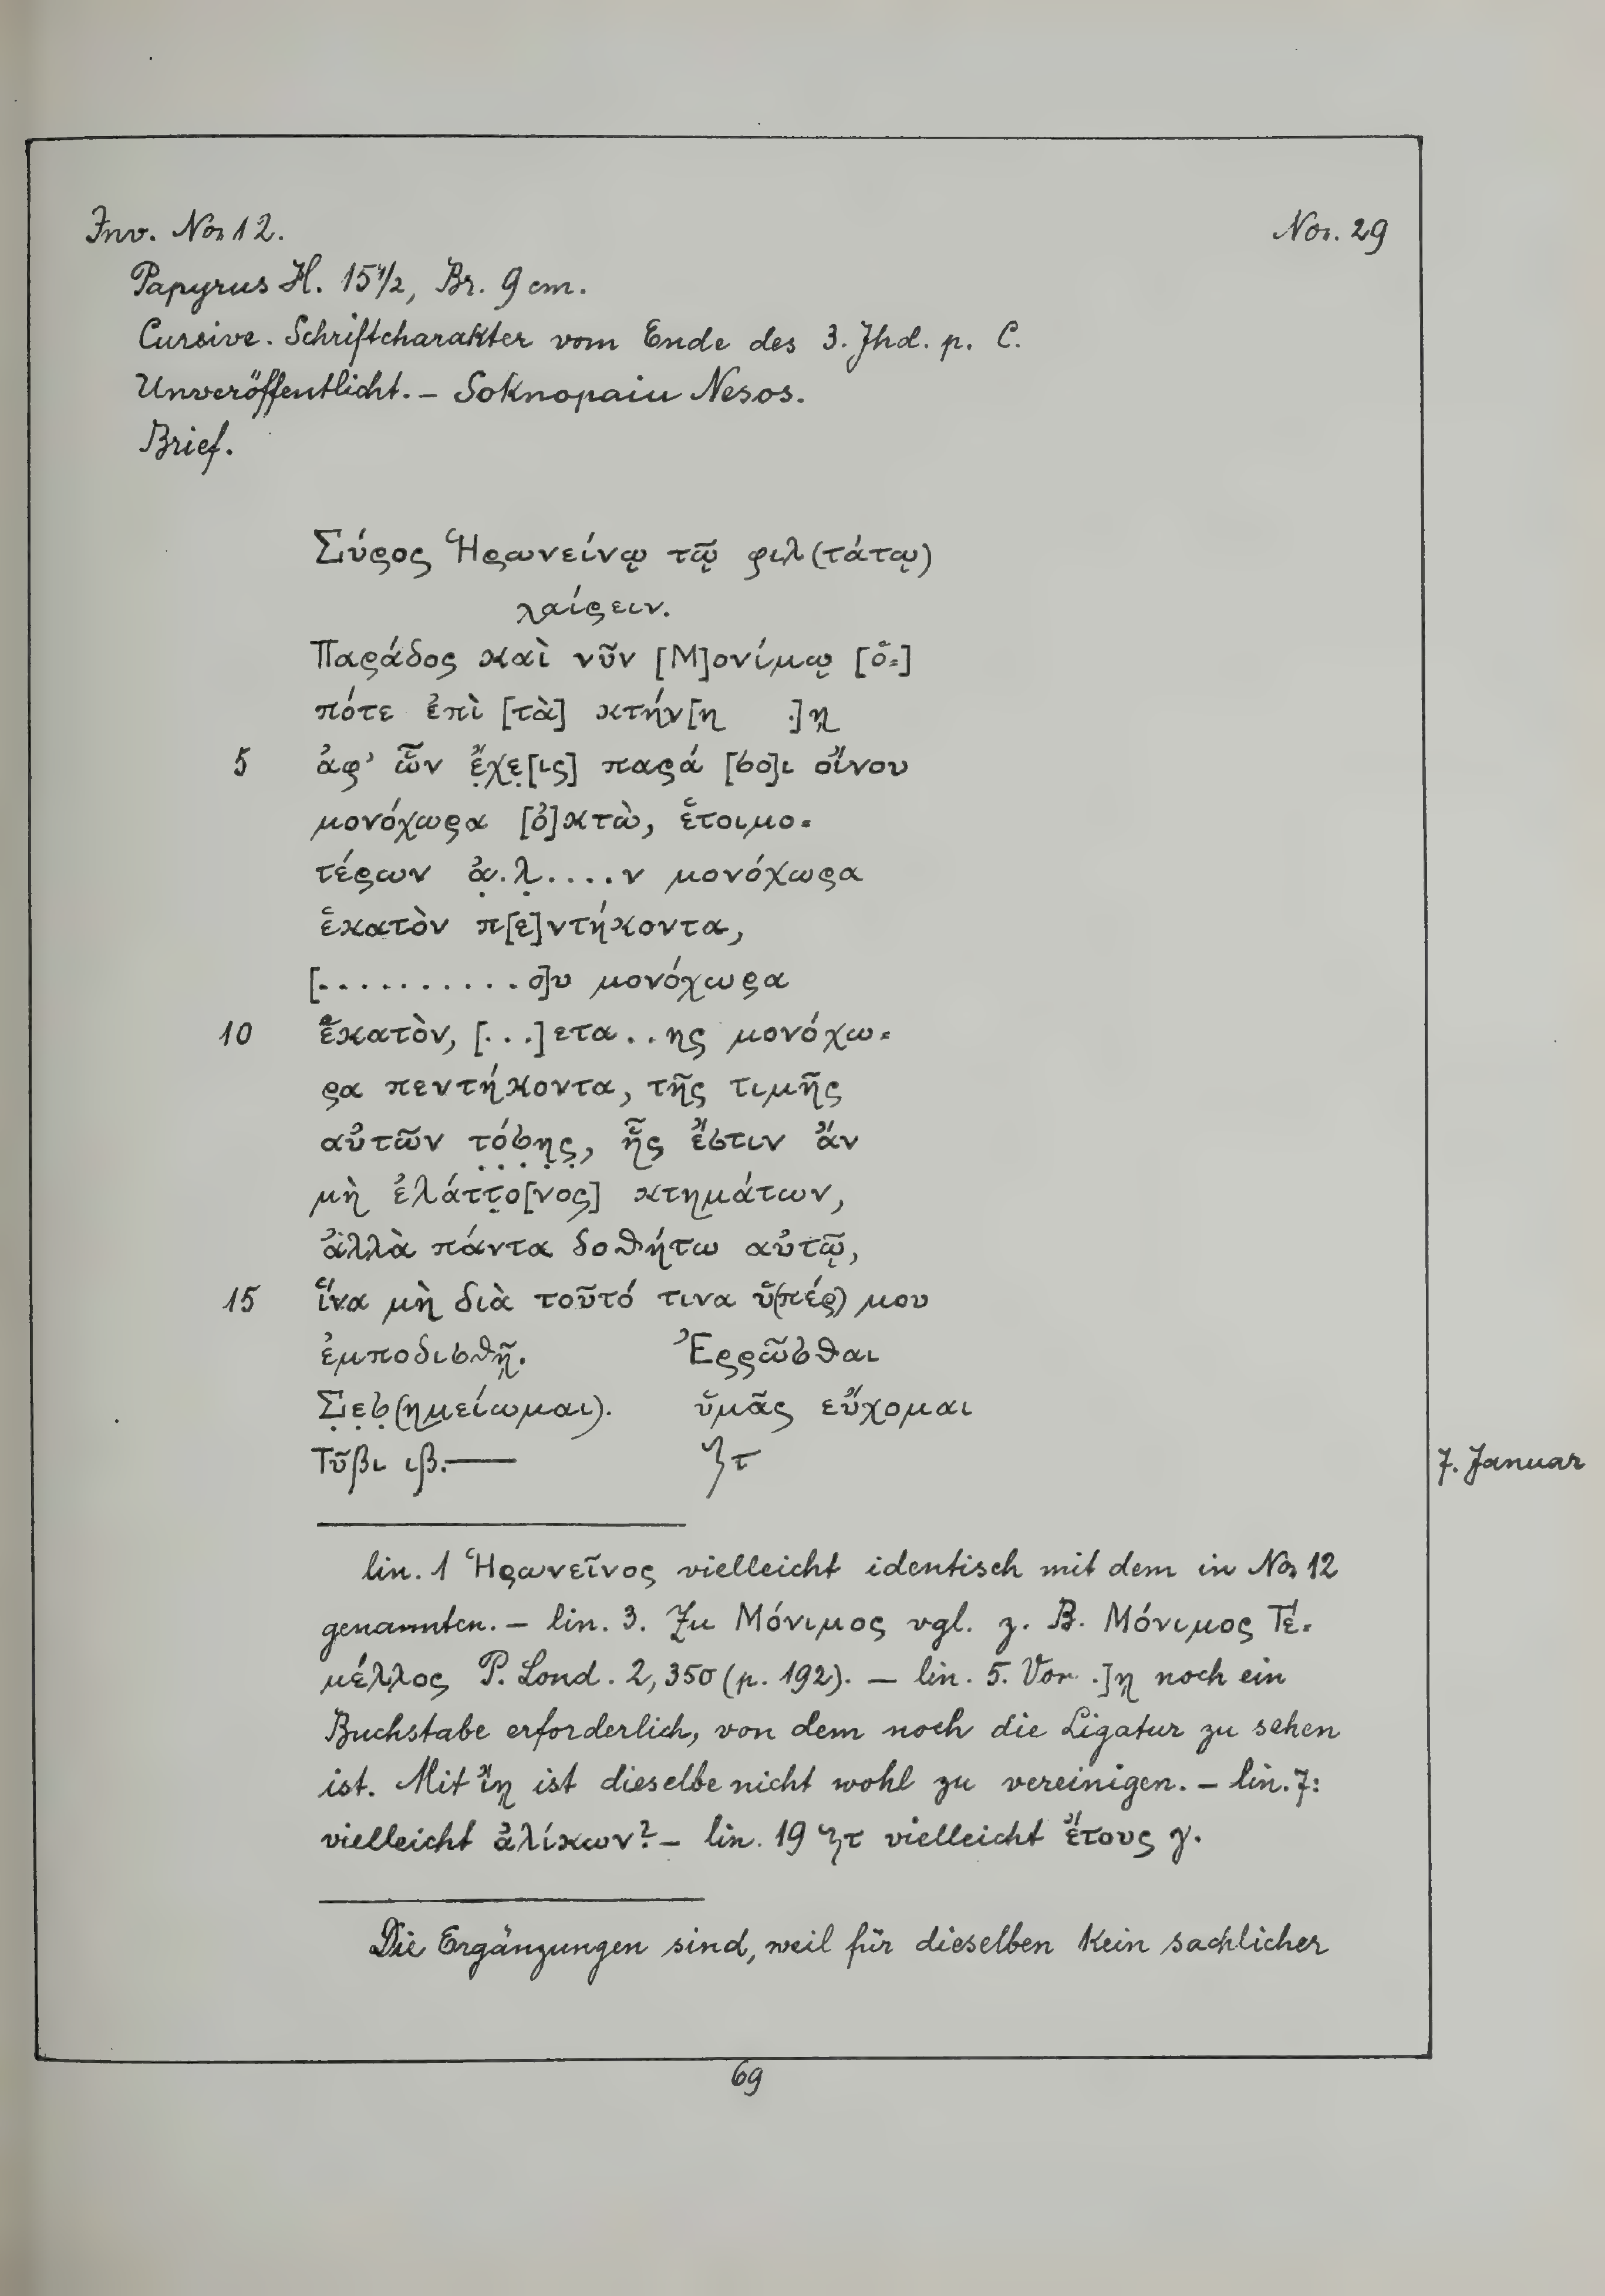 Inv. No. 12. No. 29
Papyrus H. 15 1/2, Br. 9 cm.
Cursive. Schriftcharakter vom Ende des 3. Jhd. p. C.
Unveröffentlicht. – Soknopaiu Nesos.
Brief.
Σύρος Ἡρωνείνῳ τῷ φιλ(τάτῳ)
χαίρειν.
Παράδος καὶ νῦν [Μ]ονίμῳ [ὁ=]
πότε ἐπὶ [τὰ] κτήν[η .]η
5 ἀφ’ ὧν ἔ̣χε̣[ις] παρά [σο]ι οἴνου
μονόχωρα [ὀ]κτὼ, ἑτοιμο=
τέρων ἀ̣.λ̣....ν μονόχωρα
ἑκατὸν π[ε]ντήκοντα,
[...........ο]υ μονόχωρα
10 ἑκατὸν, [...]ετα..ης μονόχω=
ρα πεντήκοντα, τῆς τιμῆς
αὐτῶν τ̣ό̣σ̣η̣ς̣, ἧς ἔστιν ἄν
μὴ ἐλάττ̣ο[νος] κτημάτων,
ἀλλὰ πάντα δοθήτω αὐτῷ,
15 ἵνα μὴ διὰ τοῦτό τινα ὑ(πέρ) μου
ἐμποδισθῇ. Ἐρρῶσθαι
Σ̣ε̣σ̣(ημείωμαι). ὑμᾶς εὔχομαι
Τῦβι ιβ.— ϟτ 7. Januar
lin. 1 Ἡρωνεῖνος vielleicht identisch mit dem in No 12
genannten. – lin. 3. Zu Μόνιμος vgl. z. B. Μόνιμος Τέ=
μέλλος P. Lond. 2, 350 (p. 192). – lin. 5. Vor .]η noch ein
Buchstabe erforderlich, von dem noch die Ligatur zu sehen
ist. Mit ἴη ist dieselbe nicht wohl zu vereinigen. – lin. 7:
vielleicht ἁλίκων? – lin. 19 ϟτ vielleicht ἔτους γ.
Die Ergänzungen sind, weil für dieselben kein sachlicher
69